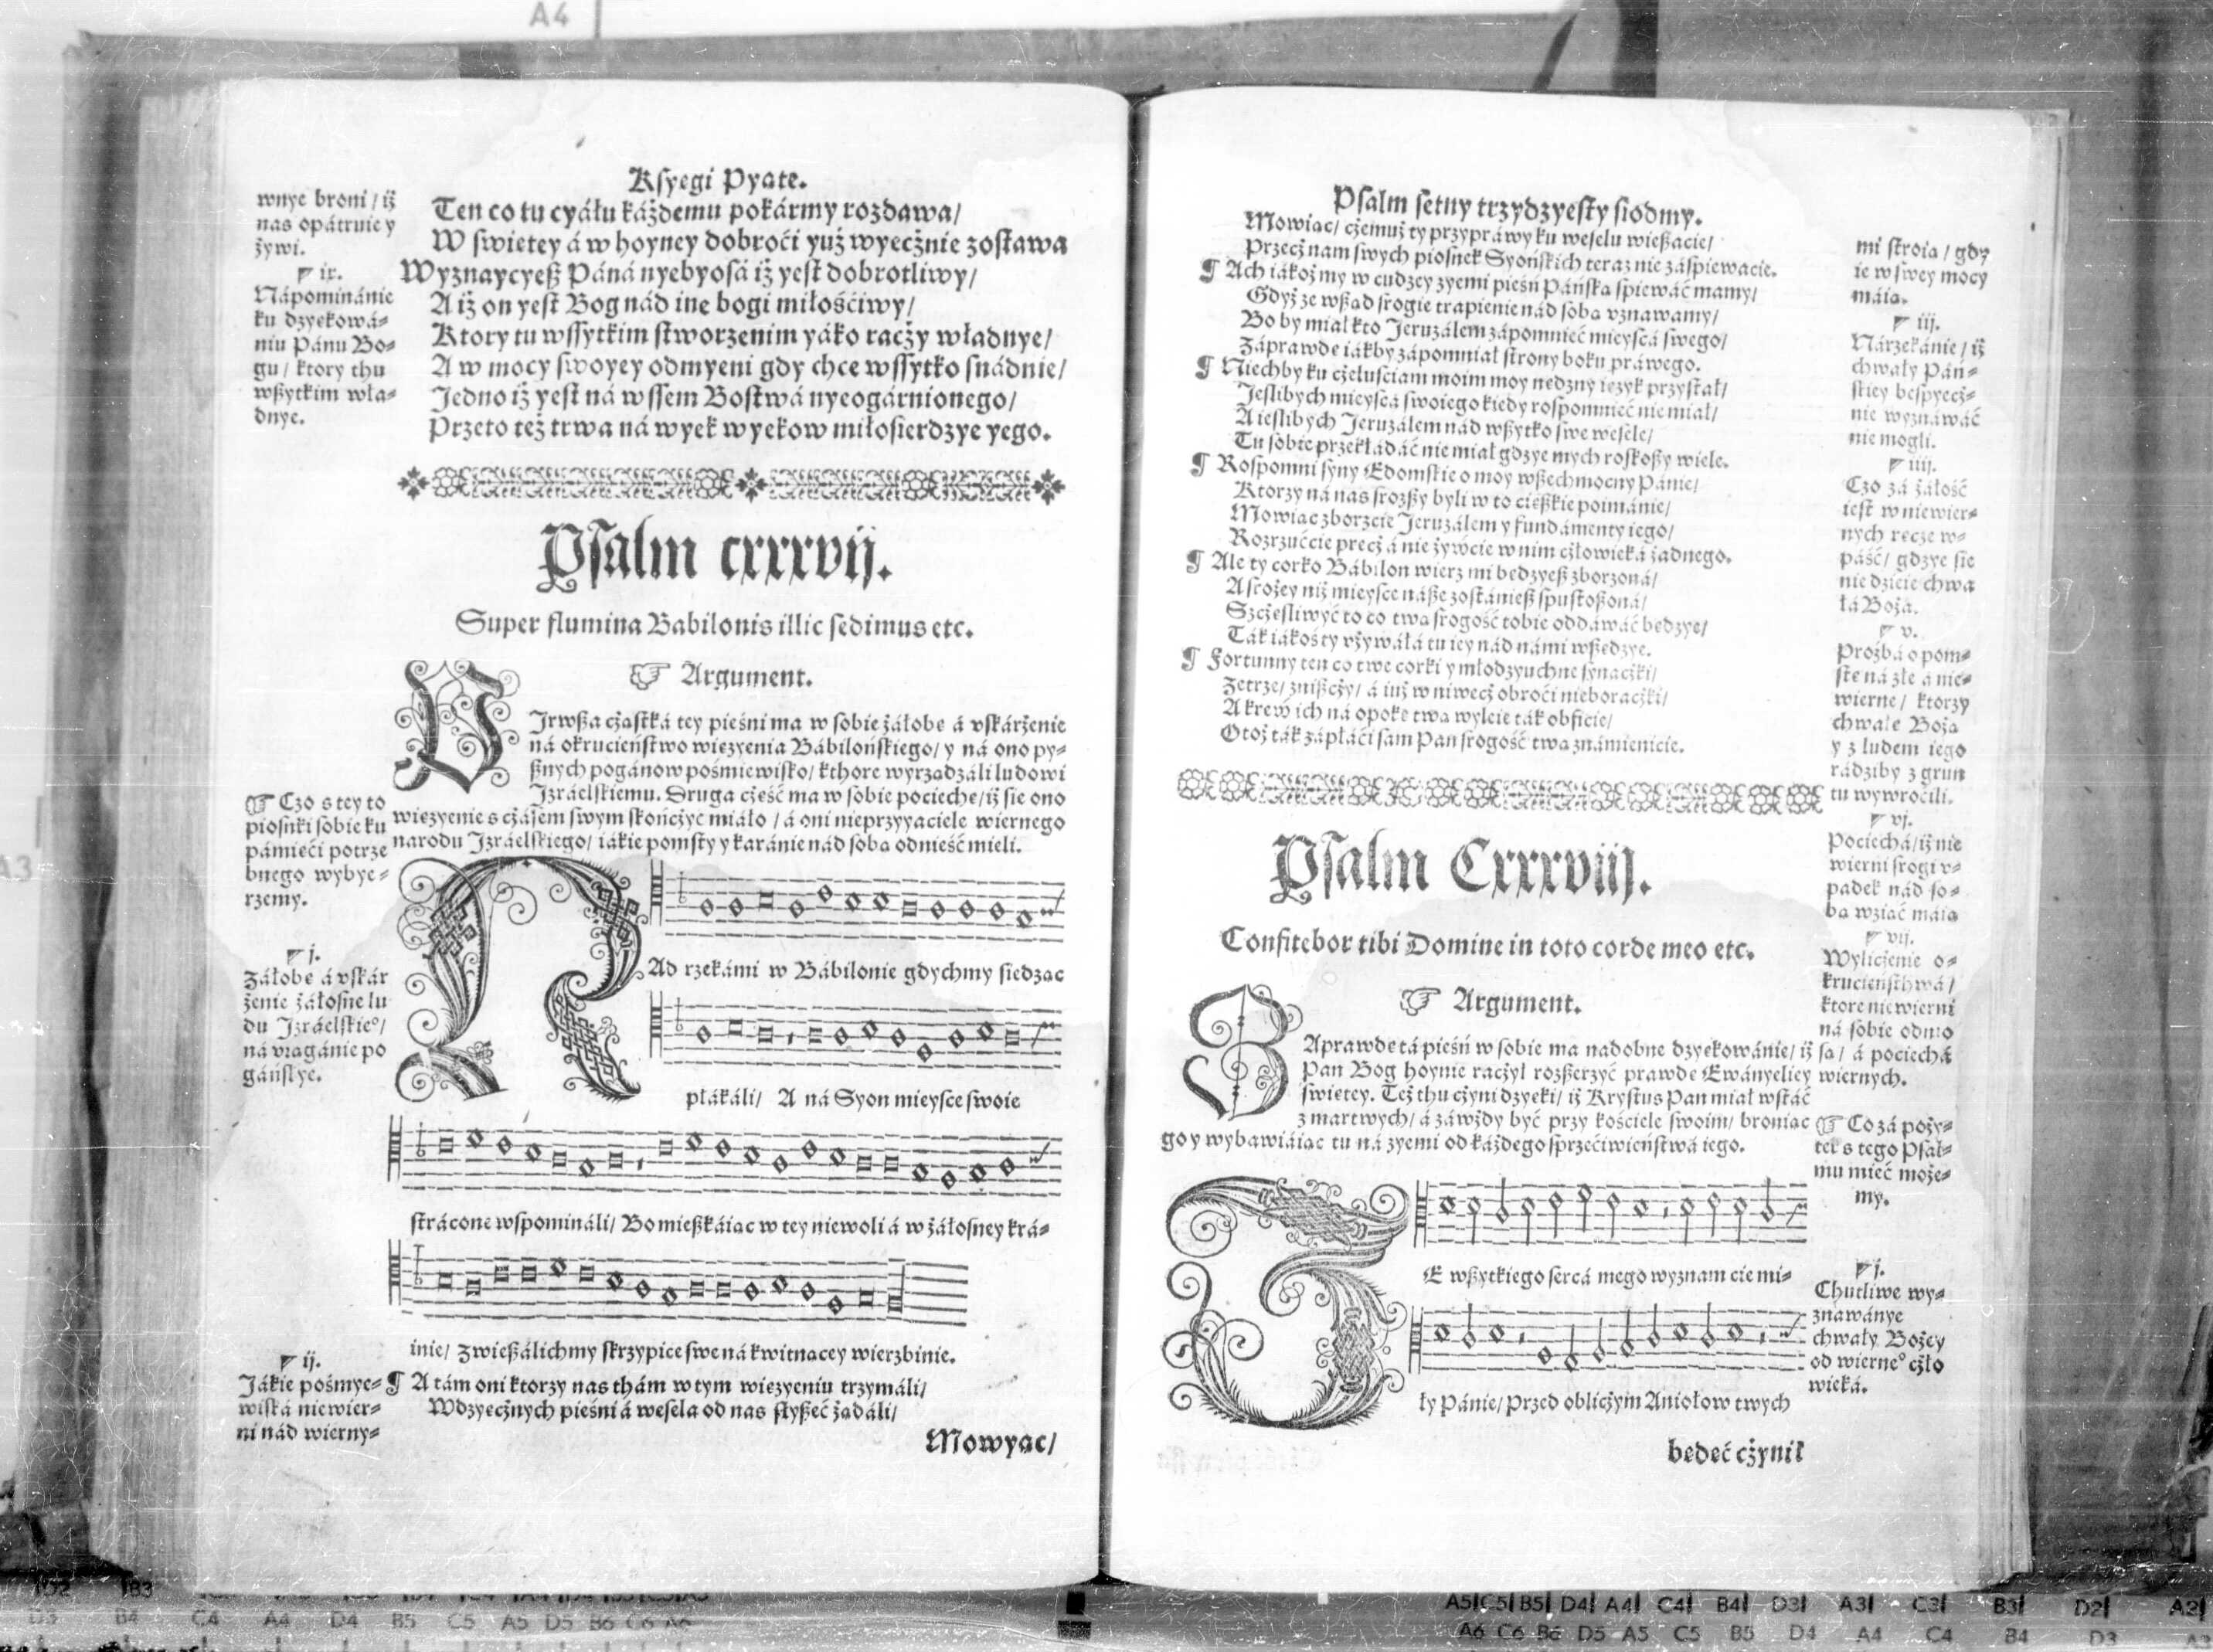 A4
Ksyegi Pyate.
wnye broni / iż
nas opátruie y
żywi.
ix.
Nápominánie
ku dzyekowá-
niu Pánu Bo-
gu / ktory thu
wßytkim wła-
dnye.
Ten co tu cyáłu káżdemu pokármy rozdawa/
W swietey á w hoyney dobroći yuż wyecżnie zostawa
Wyznaycyeß Páná nyebyosá iż yest dobrotliwy/
A iż on yest Bog nád ine bogi miłośćiwy/
Ktory tu wssytkim stworzenim yáko racży władnye/
A w mocy swoyey odmyeni gdy chce wssytko snádnie/
Jedno iż yest ná wssem Bostwá nyeogárnionego/
Przeto też trwa ná wyek wyekow miłosierdzye yego.
Psalm cxxxvij.
Super flumina Babilonis illic sedimus etc.
Argument.
PIrwßa cżastká tey pieśni ma w sobie żáłobe á vskárżenie
ná okrucieństwo wiezyenia Bábilońskiego/ y ná ono py-
ßnych pogánow pośmiewisko/ kthore wyrzadzáli ludowi
Jzráelskiemu. Druga cżeść ma w sobie pocieche/ iż sie ono
wiezyenie s cżásem swym skończyć miáło / á oni nieprzyyaciele wiernego
narodu Jzráelskiego/ iákie pomsty y karánie nád soba odnieść mieli.
Czo s tey to
piosnki sobie ku
pámieći potrze
bnego wybye-
rzemy.
j.
Záłobe á vskár
żenie żáłosne lu
du Jzráelskie°/
ná vragánie po
gáńslye.
NAd rzekámi w Bábilonie gdychmy siedzac
płákáli/ A ná Syon mieysce swoie
strácone wspomináli/ Bo mießkáiac w tey niewoli á w żáłosney krá-
inie/ Zwießálichmy skrzypice swe ná kwitnacey wierzbinie.
ij.
Jákie pośmye-
wiská niewier-
ni nád wierny-
¶ A tám oni ktorzy nas thám w tym wiezyeniu trzymáli/
Wdzyecżnych pieśni á wesela od nas słyßeć żadáli/
Mowyac/
Psalm setny trzydzyesty siodmy.
Mowiac/ cżemuż ty przypráwy ku weselu wießacie/
Przecż nam swych piosnek Syońskich teraz nie záspiewacie.
¶ Ach iákoż my w cudzey zyemi pieśń Páńska śpiewáć mamy/
Gdyż ze wßad srogie trapienie nád soba vznawamy/
Bo by miał kto Jeruzálem zápomnieć mieyscá swego/
Záprawde iákby zápomniał strony boku práwego.
¶ Niechby ku cżelusciam moim moy nedzny iezyk przystał/
Jeslibych mieyscá swoiego kiedy rospomnieć nie miał/
A ieslibych Jeruzálem nád wßytko swe wesele/
Tu sobie przekłádáć nie miał gdzye mych roskoßy wiele.
¶ Rospomni syny Edomskie o moy wßechmocny Pánie/
Ktorzy ná nas srozßy byli w to cießkie poimánie/
Mowiac zborzcie Jeruzálem y fundámenty iego/
Rozrzućcie precż á nie żywćie w nim cżłowieká żadnego.
¶ Ale ty corko Bábilon wierz mi bedzyeß zborzoná/
A srożey niż mieysce náße zostánieß spustoßoná/
Szcżesliwyć to co twa srogość tobie oddáwáć bedzye/
Ták iákoś ty vżywáłá tu iey nád námi wßedzye.
¶ Fortunny ten co twe corki y młodzyuchne synacżki/
Zetrze/ znißcży/ á iuż w niwecż obroći nieboracżki/
A krew ich ná opoke twa wyleie ták obficie/
Otoż ták zápłáći sam Pan srogość twa známienicie.
mi stroia / gdy
ie w swey mocy
máia.
iij.
Nárzekánie / iż
chwały Pán-
skiey bespyecż-
nie wyznáwáć
nie mogli.
iiij.
Czo zá żáłość
iest w niewier-
nych recze w-
páść/ gdzye sie
nie dzieie chwa
łá Boża.
v.
Prożbá o pom-
ste ná złe á nie-
wierne / ktorzy
chwałe Boża
y z ludem iego
rádziby z grun
tu wywroćili.
vj.
Pociechá/ iż nie
wierni srogi v-
padek nád so-
ba wziać máia
vij.
Wyliczenie o-
krucieństhwá/
ktore niewierni
ná sobie odnio
sa/ á pociechá
wiernych.
Psalm Cxxxviij.
Confitebor tibi Domine in toto corde meo etc.
Argument.
ZAprawde tá pieśń w sobie ma nadobne dzyekowánie/ iż
Pan Bog hoynie racżył rozßerzyć prawde Ewányeliey
swietey. Też thu cżyni dzyeki/ iż Krystus Pan miał wstáć
z martwych/ á záwżdy być przy kościele swoim/ broniac
go y wybawiáiac tu ná zyemi od káżdego sprzećiwieństwá iego.
Co zá poży-
tek s tego Psál-
mu mieć może-
my.
ZE wßytkiego sercá mego wyznam cie mi-
ły Pánie/ Przed oblicżym Aniołow twych
j.
Chutliwe wy-
znawánye
chwały Bożey
od wierne° cżło
wieká.
bedeć cżynił